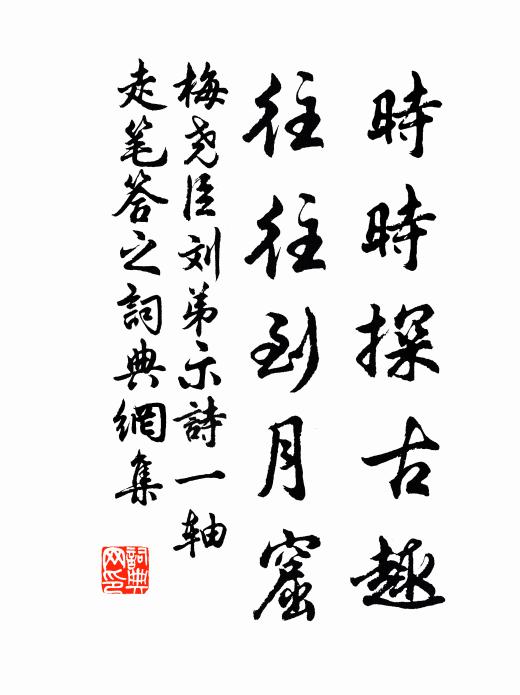 時時探古趣
往往到月窟
梅尧臣刘弟示詩一軸
走笔答之詞典網集
詞典
网印